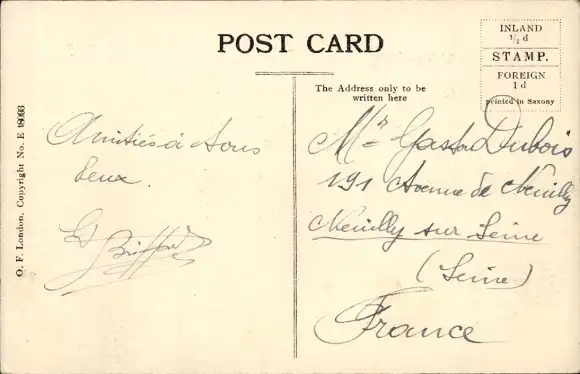 POST CARD
INLAND
½ d
STAMP.
FOREIGN
1 d
printed in Saxony
The Address only to be
written here
O. F. London. Copyright No. E 18093
Amitiés à tous
deux.
Mr Gaston Dubois
191 Avenue de Neuilly
Neuilly sur Seine
(Seine)
France